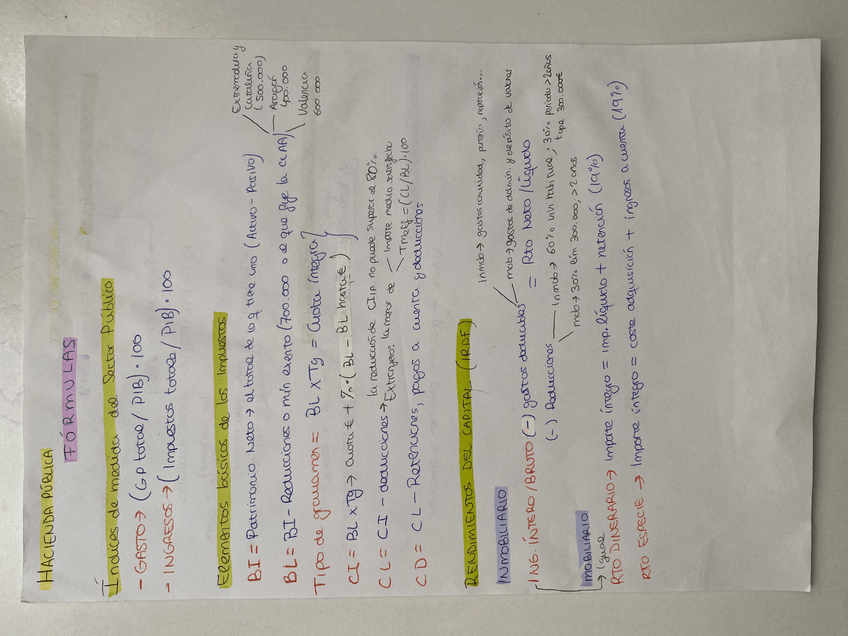 HACIENDA PÚBLICA
FÓRMULAS
Índices de medida del Sector Público
- GASTO → (GP total / PIB) · 100
- INGRESOS → (Impuestos totales / PIB) · 100
Elementos básicos de los impuestos
BI = Patrimonio Neto → el total de lo q tiene uno (Activo - Pasivo)
BL = BI - Reducciones o mín exento (700.000 o el que fije la CCAA)
Extremadura y Cataluña (500.000)
Aragón 400.000
Valencia 600.000
Tipo de gravamen = BL x Tg = Cuota íntegra
CI = BL x Tg → Cuota € + % · (BL - BL hasta €)
la reducción de CI IP no puede superar el 80%
CL = CI - deducciones → Extranjero: la menor de
Importe medio satisfecho
TMeff = (CL/BL) · 100
CD = CL - Retenciones, pagos a cuenta y deducciones
RENDIMIENTOS DEL CAPITAL (IRPF)
INMOBILIARIO
Inmob → gastos comunidad, portería, reparación...
ING. ÍNTERO / BRUTO (-) gastos deducibles
mob → gastos de admin. y depósito de valores
(-) Reducciones = Rto Neto / Líquido
Inmob → 60% viv habitual ; 30% periodo > 2 años tope 300.000€
mob → 30% lím 300.000, > 2 años
MOBILIARIO
→ Igual
RTO DINERARIO → Importe íntegro = imp. líquido + retención (19%)
RTO ESPECIE → Importe íntegro = coste adquisición + ingreso a cuenta (19%)